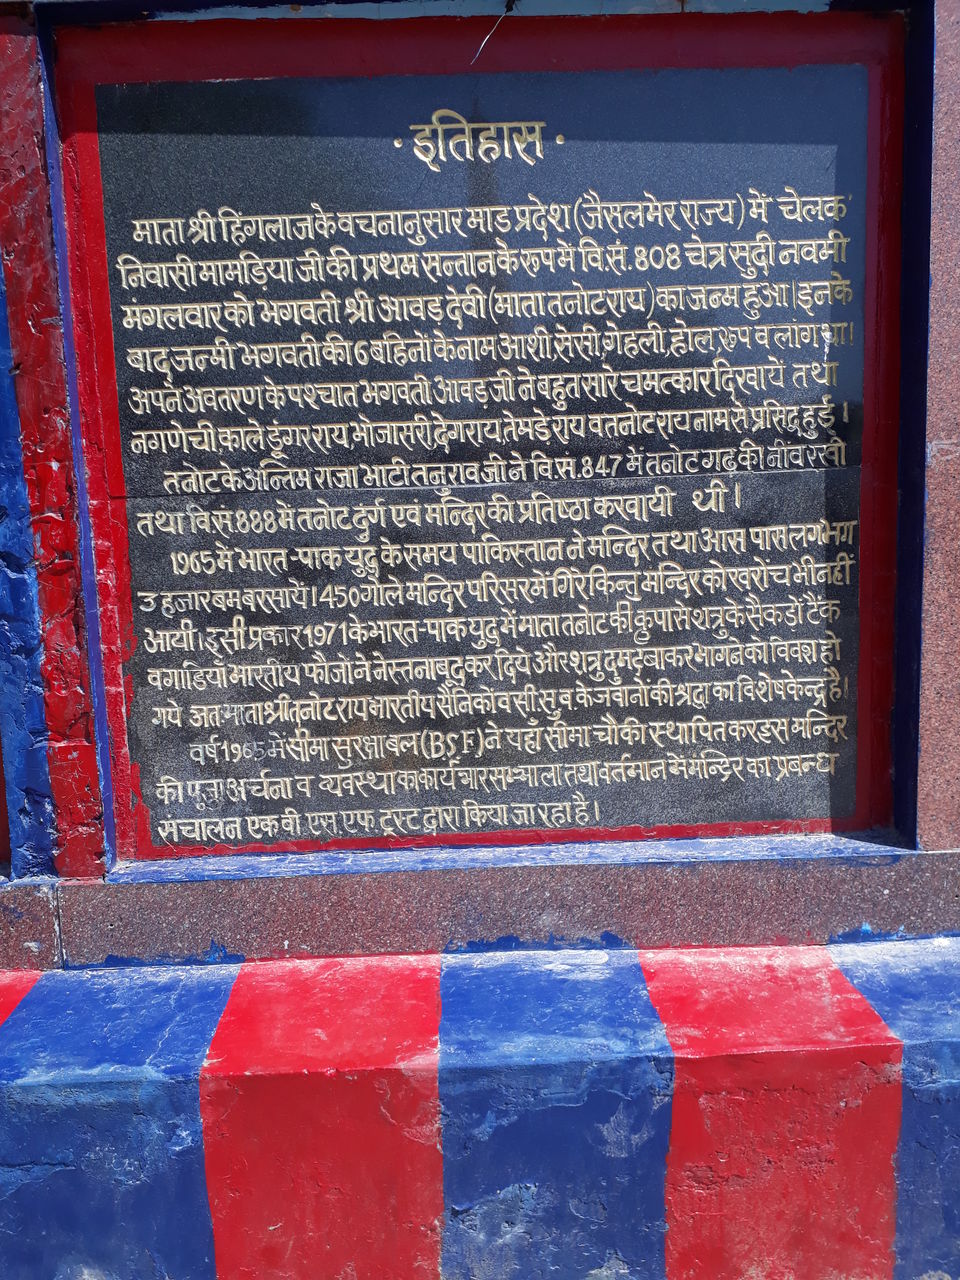 · इतिहास ·
माता श्री हिंगलाज के वचनानुसार माड प्रदेश (जैसलमेर राज्य) में चेलक
निवासी मामड़िया जी की प्रथम सन्तान के रूप में वि.सं. 808 चेत्र सुदी नवमी
मंगलवार को भगवती श्री आवड़ देवी (माता तनोटराय) का जन्म हुआ। इनके
बाद जन्मी भगवती की 6 बहिनों के नाम आशी, सेसी, गेहली, होल, रूप व लांग था।
अपने अवतरण के पश्चात भगवती आवड़ जी ने बहुत सारे चमत्कार दिखायें तथा
नगणेची, काले डूंगरराय, भोजासरी, देगराय, तेमडेराय व तनोटराय नाम से प्रसिद्ध हुई।
तनोट के अन्तिम राजा भाटी तनुरावजी ने वि.सं. 847 में तनोट गढ की नींव रखी
तथा वि.सं 888 में तनोट दुर्ग एवं मन्दिर की प्रतिष्ठा करवायी थी।
1965 में भारत-पाक युद्ध के समय पाकिस्तान ने मन्दिर तथा आस पास लगभग
3 हजार बम बरसायें। 450 गोले मन्दिर परिसर में गिरे किन्तु मन्दिर को खरोंच भी नहीं
आयी। इसी प्रकार 1971 के भारत-पाक युद्ध में माता तनोट की कृपा से शत्रु के सैकडों टैंक
व गाडियाँ भारतीय फौजो ने नेस्तनाबूद कर दिये और शत्रु दुम दबाकर भागने को विवश हो
गये अतः माता श्री तनोटराय भारतीय सैनिकों व सी.सु.ब के जवानों की श्रद्धा का विशेष केन्द्र है।
वर्ष 1965 में सीमा सुरक्षा बल (B.S.F.) ने यहाँ सीमा चौकी स्थापित कर इस मन्दिर
की पूजा अर्चना व व्यवस्था का कार्य भार सम्भाला तथा वर्तमान में मन्दिर का प्रबन्ध
संचालन एक बी एस. एफ ट्रस्ट द्वारा किया जा रहा है।